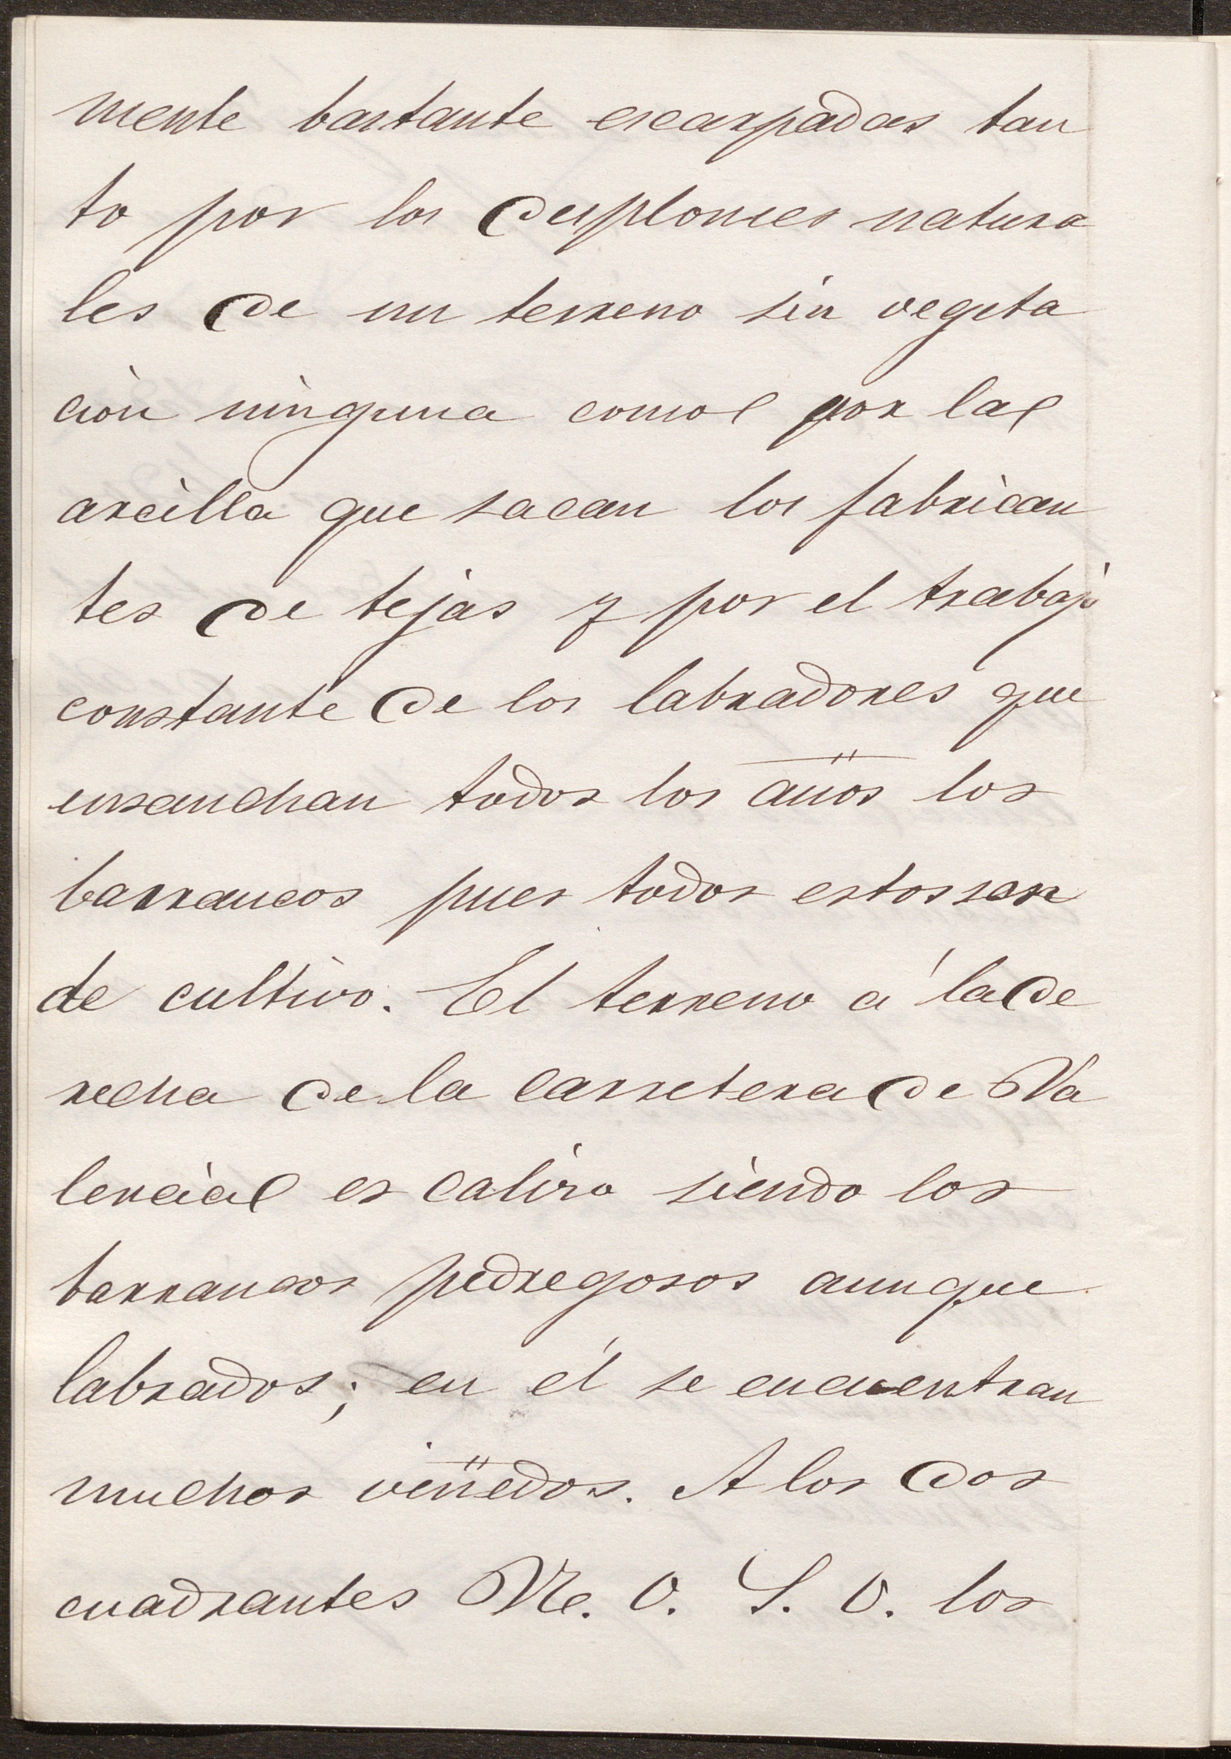 mente bastante escarpadas tan
to por los desplomes natura
les de un terreno sin vegeta
ción ninguna como por la
arcilla que sacan los fabrican
tes de tejas y por el trabajo
constante de los labradores que
ensanchan todos los años los
barrancos pues todos estos son
de cultivo. El terreno á la de
recha de la carretera de Va
lencia es calizo siendo los
barrancos pedregosos aunque
labrados; en él se encuentran
muchos viñedos. A los dos
cuadrantes Ne. O. S. O. los